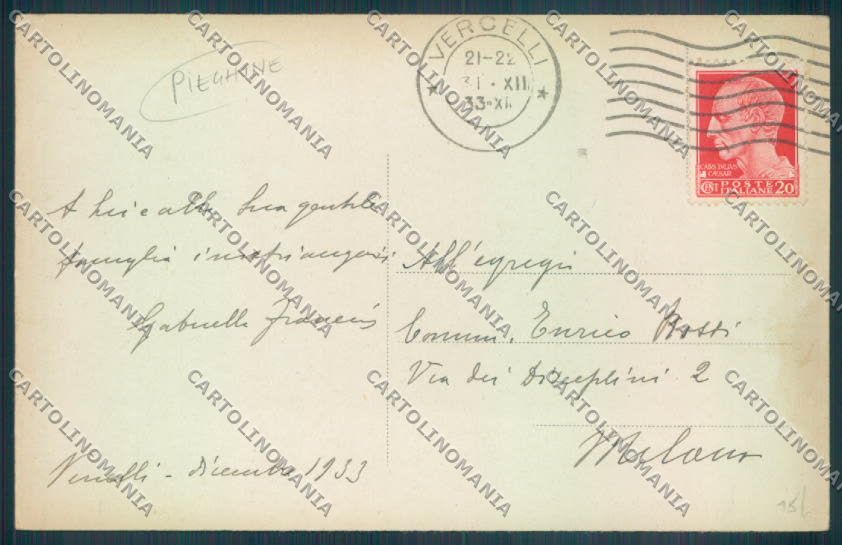 PIEGHINE
VERCELLI
21-22
31 · XII
33·XII
CAIVS IVLIVS
CAESAR
CENT POSTE ITALIANE 20
A Lei e alla Sua gentile
famiglia
Gabriella
Vercelli - dicembre 1933
All'egregio
Comm. Enrico Rossi
Via dei Disciplini 2
Milano
CARTOLINOMANIA